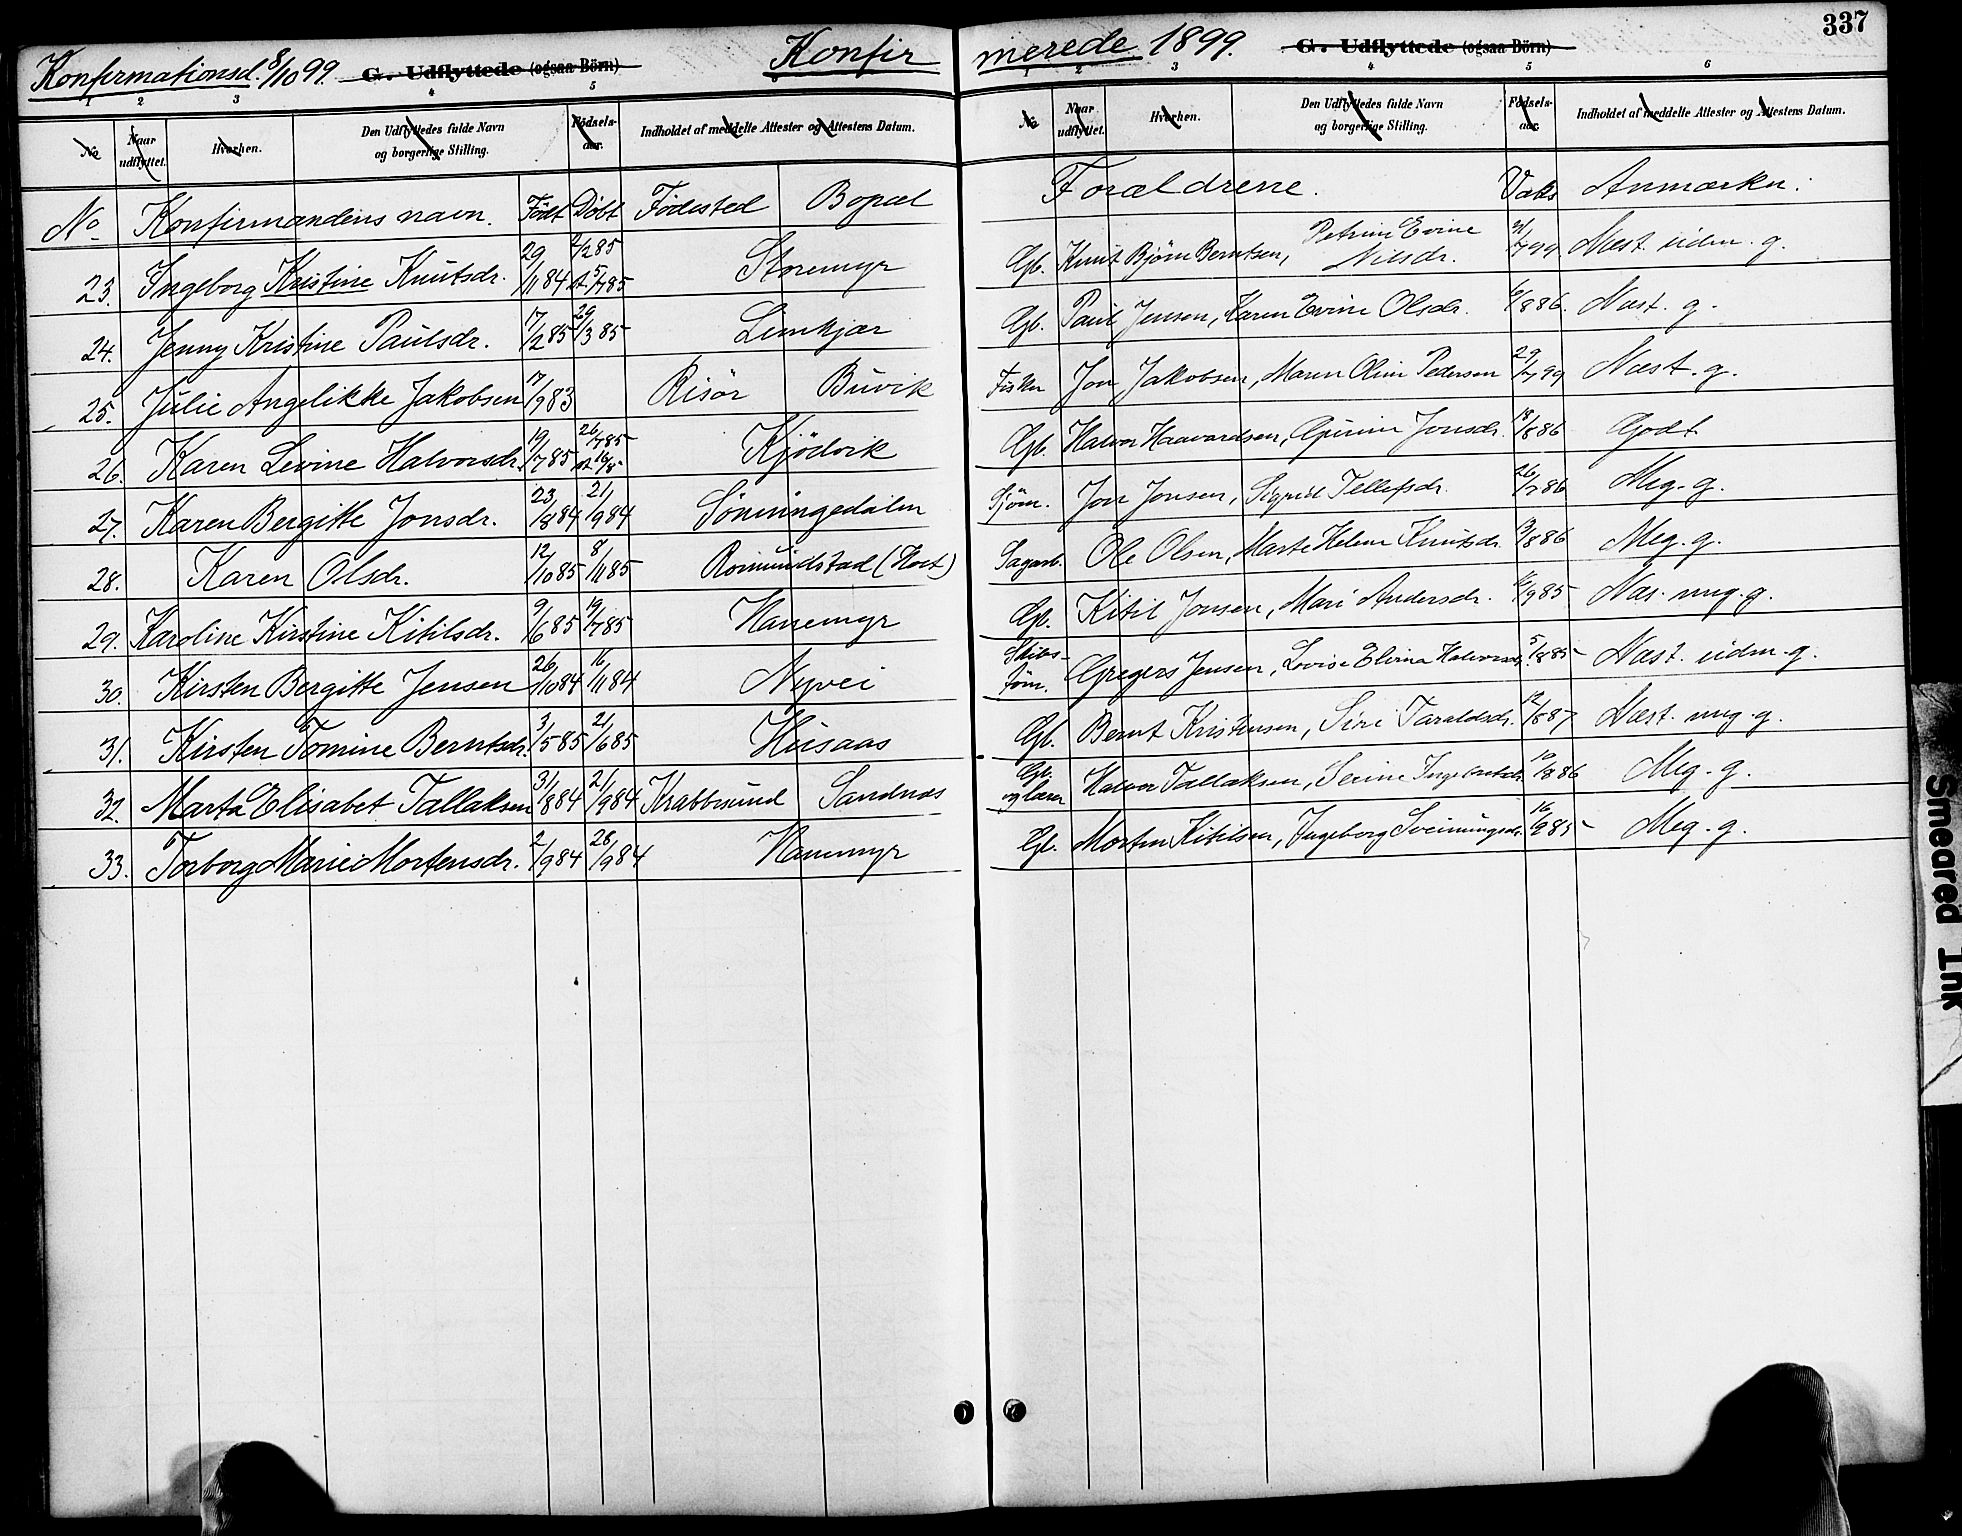 337
Konfirmationsd. 8/10 99. G. Udflyttede (ogsaa Börn) Konfir
merede 1899. G. Udflyttede (ogsaa Börn)
1 2 3 4 5 6
1 2 3 4 5 6
No Naar udflyttet. Hvorhen. Den Udflyttedes fulde Navn og borgerlige Stilling. Fødsels-aar. Indholdet af meddelte Attester og Attestens Datum.
No Naar udflyttet. Hvorhen. Den Udflyttedes fulde Navn og borgerlige Stilling. Fødsels-aar. Indholdet af meddelte Attester og Attestens Datum.
No Konfirmandens navn. Født Döbt Födested Bopæl Forældrene. Vaks Anmærkn.
23. Ingeborg Kristine Knutsdr. 29/11 84 2/2 85 st 5/7 85 Storemyr Gb. Knut Bjørn Berntsen, Petrine Evine Nilsdr. Mæst. udm. g.
24. Jenny Kristine Paulsdr. 17/2 85 29/3 85 Limkjær Gb. Paul Jensen, Karen Evine Olsdr. 6/8 86. Næst. g.
25. Julie Angelikke Jakobsen 17/9 83 Risör Buvik Fisker Jon Jakobsen, Maren Oline Pedersen 29/7 99 Næst. g.
26. Karen Levine Halvorsdr. 19/7 85 26/7 85 st 16/8 Kjödvik Gb. Halvor Haavardsen, Gurine Jonsdr. 18/8 86 Godt
27. Karen Bergitte Jonsdr. 23/8 84 21/9 84 Sönningedalen Sjöm. Jon Jonsen, Sigrid Tellefsdr. 26/7 86 Meg. g.
28. Karen Olsdr. 12/10 85 8/11 85 Romundstad (Hort) Sagarb. Ole Olsen, Marte Helene Knutsdr. 9/8 86 Meg. g.
29. Karoline Kirstine Kitilsdr. 9/6 85 19/7 85 Hanemyr Gb. Kitil Jonsen, Mari Andersdr. 16/9 85 Næs. meg. g.
30. Kirsten Bergitte Jensen 26/10 84 16/11 84 Nyvei Skibs-töm. Gregers Jensen, Lovise Elvine Halvorsdr. 5/8 85 Næst. udm. g.
31. Kirsten Tomine Berntsdr. 3/5 85 2/6 85 Husaas Gb. Bernt Kristensen, Siri Taraldsdr. 12/8 87 Næst. meg. g.
32. Marta Elisabet Tallaksen 31/8 84 21/9 84 Krabbesund Sandnæs Gb. og lærer Halvor Tallaksen, Serine Ingebretsdr. 10/8 86 Meg. g.
33. Torborg Marie Mortensdr. 2/9 84 28/9 84 Hanemyr Gb. Morten Kitilsen, Ingeborg Sveinungsdr. 16/9 85 Meg. g.
Smeared Ink